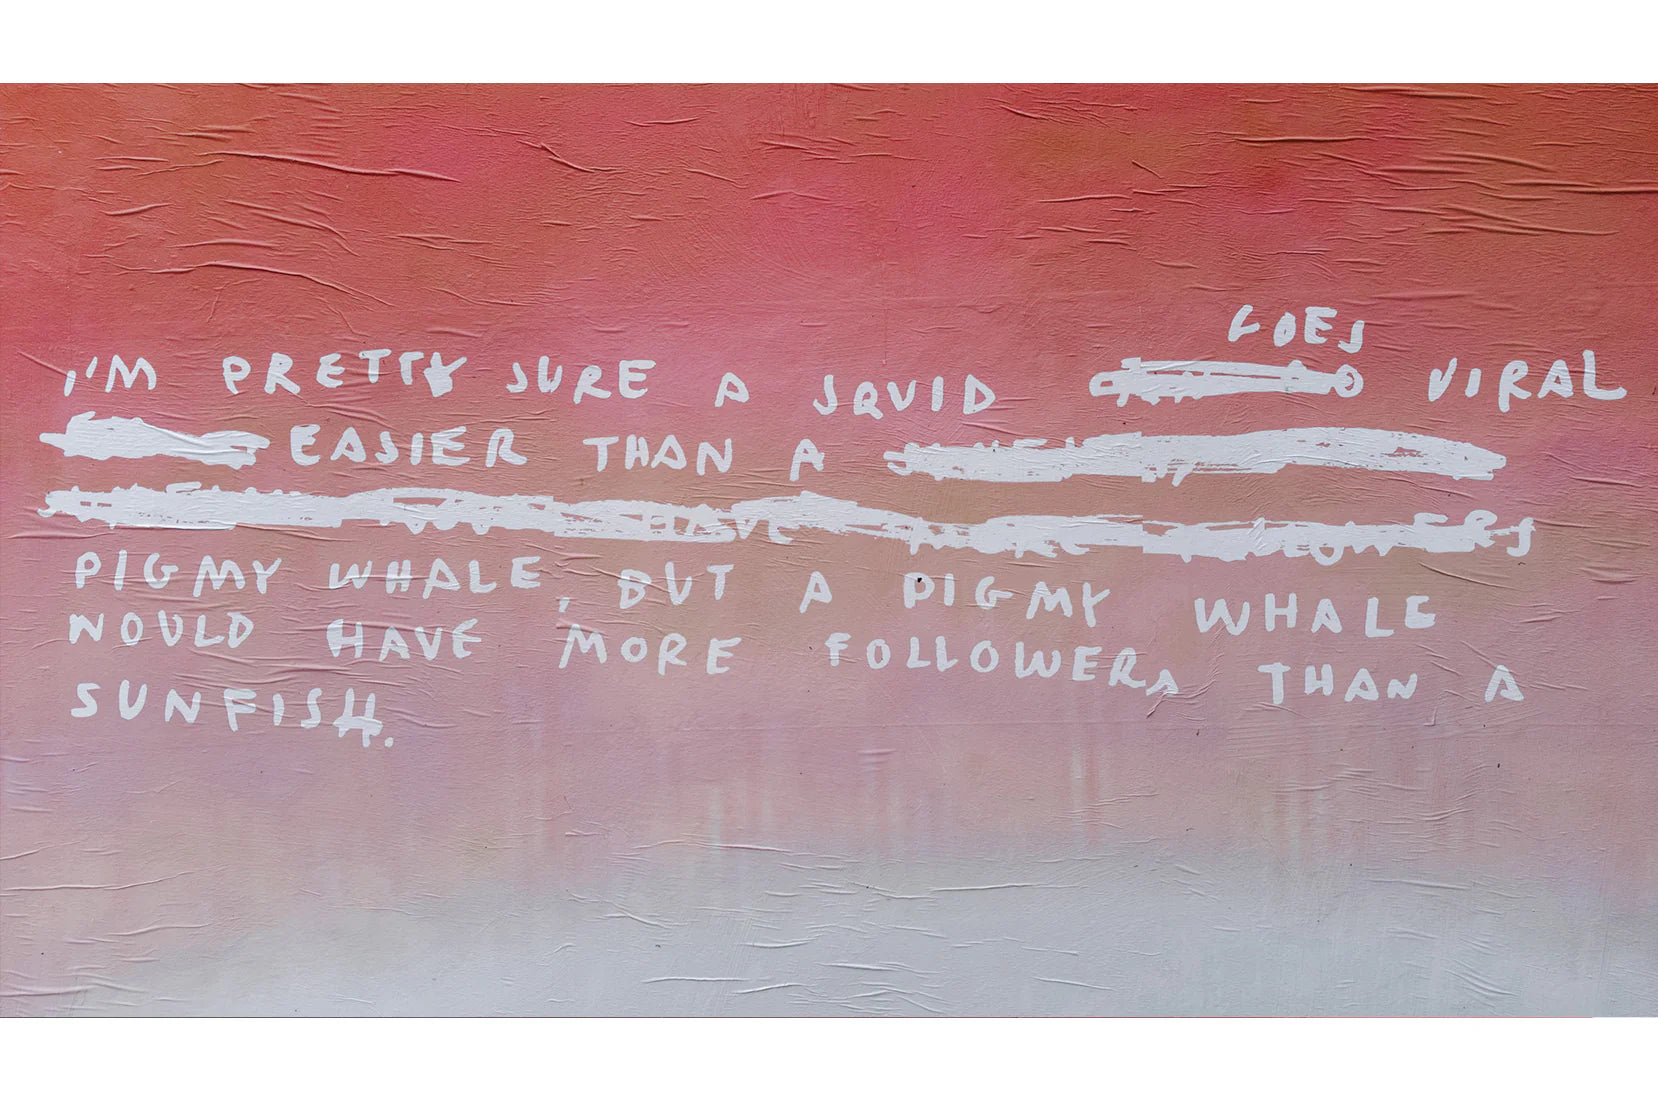 GOES
I'M PRETTY SURE A SQUID VIRAL
EASIER THAN A
PIGMY WHALE, BUT A PIGMY WHALE
WOULD HAVE MORE FOLLOWERS THAN A
SUNFISH.